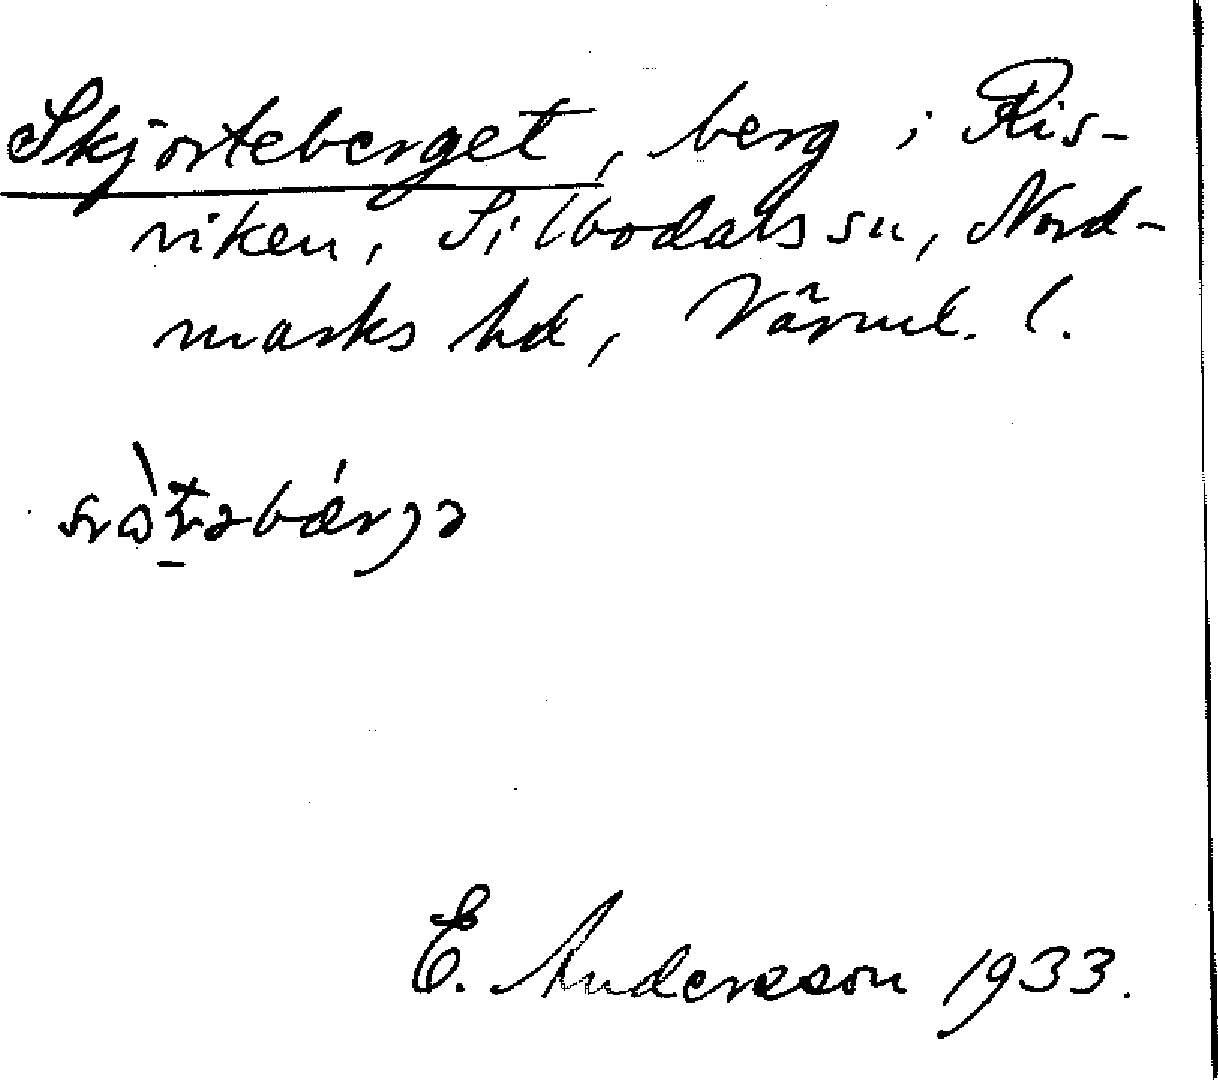 Skjorteberget, berg i Ris-
viken, Silbodals sn, Nord-
marks hd, Värml. l.
E. Andersson 1933.